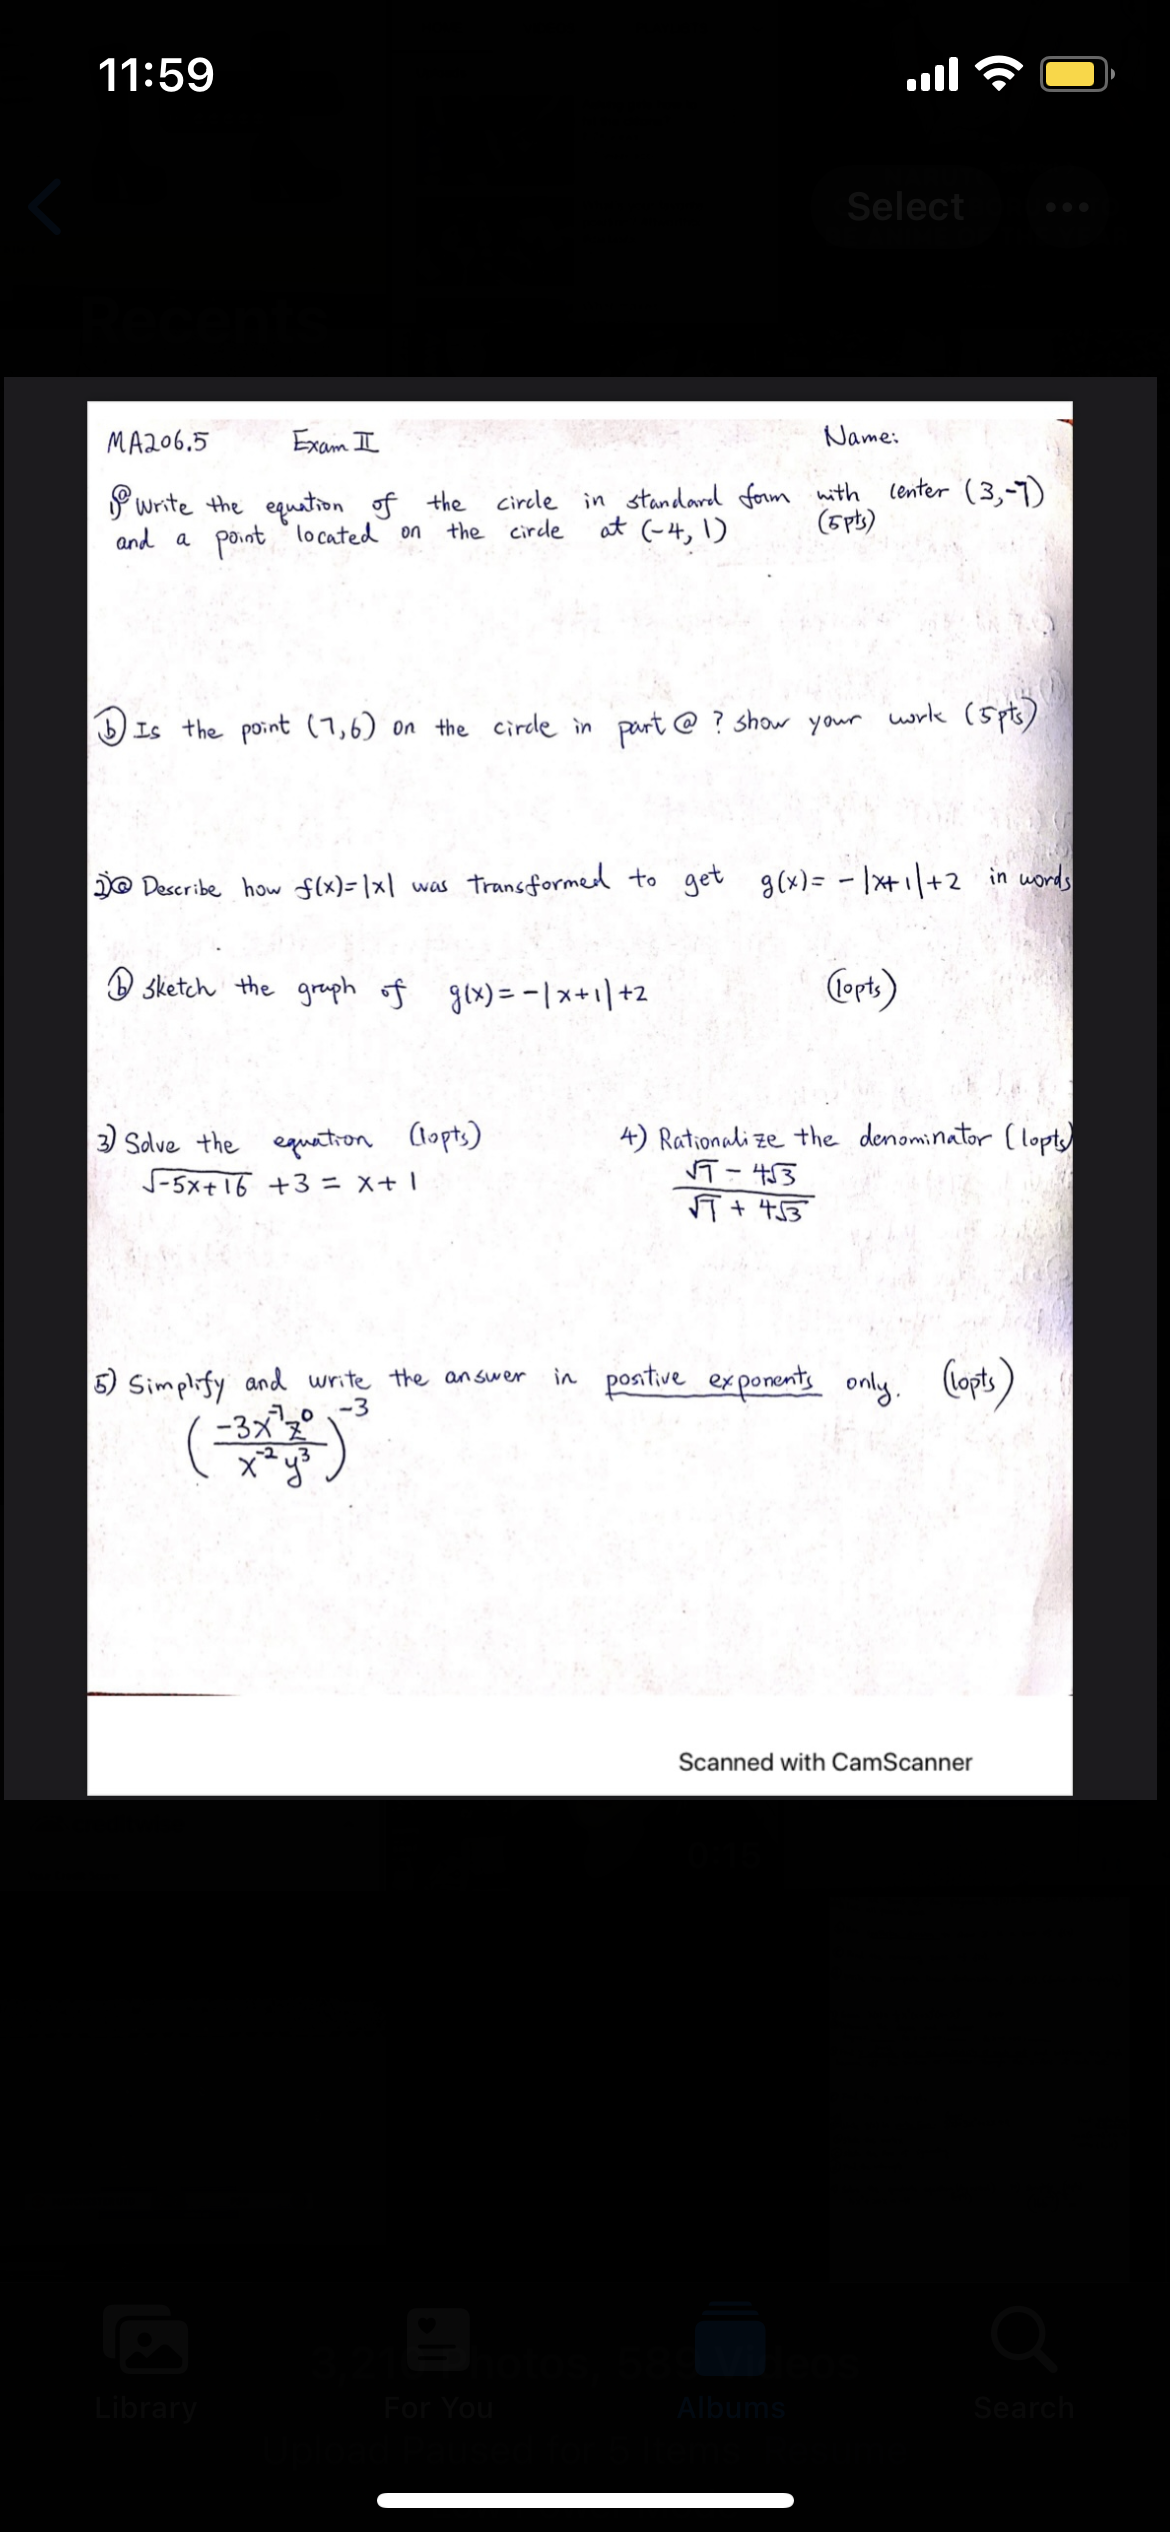 11:59
Select
Recents
MA206.5 Exam II Name:
1) ⓐ Write the equation of the circle in standard form with center (3,-7)
and a point located on the circle at (-4, 1) (5pts)
ⓑ Is the point (7,6) on the circle in part ⓐ ? show your work (5pts)
2) ⓐ Describe how f(x)=|x| was transformed to get g(x)= -|x+1|+2 in words
ⓑ sketch the graph of g(x)= -|x+1|+2 (10pts)
3) Solve the equation (10pts)
√-5x+16 +3 = x+1
4) Rationalize the denominator (10pts)
√7 - 4√3
√7 + 4√3
5) Simplify and write the answer in positive exponents only. (10pts)
(-3x⁻⁷z⁰ / x⁻²y³)⁻³
Scanned with CamScanner
0:15
Library
For You
Albums
Search
Upload Paused for 5 Items